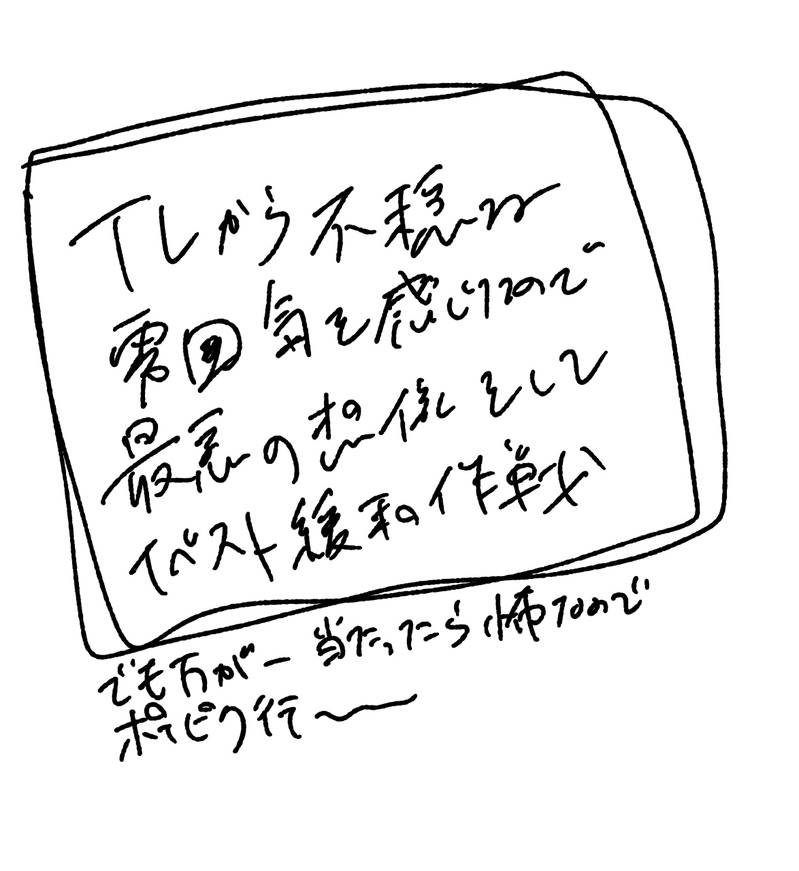 TLから不穏な
雰囲気を感じるので
最悪の想像をして
イベスト緩和作戦
でも万が一当たったら怖なので
ポイピク行〜